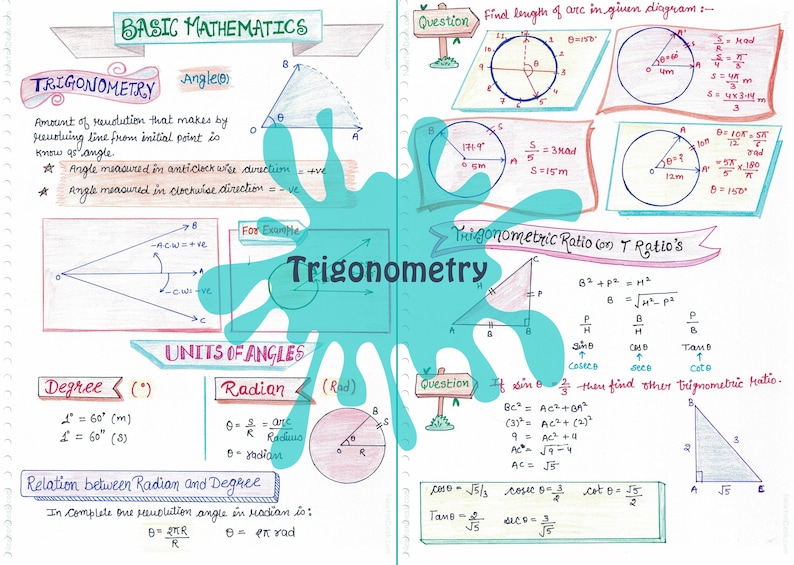 BASIC MATHEMATICS
TRIGONOMETRY
Angle(θ)
B
O
θ
A
Amount of revolution that makes by
revolving line from initial point is
know as angle.
Angle measured in anticlockwise direction = +ve
Angle measured in clockwise direction = -ve
B
-A.C.W = +ve
O
A
-C.W = -ve
C
For Example
Trigonometry
UNITS OF ANGLES
Degree (°)
1° = 60' (m)
1° = 60" (s)
Radian (Rad)
θ = S/R = arc/Radius
θ = radian
B
S
O
θ
R
A
Relation between Radian and Degree
In complete one revolution angle in radian is:
θ = 2πR/R θ = 2π rad
Question
Find length of arc in given diagram:-
θ=150°
12
1
2
3
4
5
6
7
8
9
10
11
θ=60°
4m
O
A
A'
S
S/R = rad
S/4 = π/3
S = 4π/3 m
S = 4×3.14/3 m
B
S
171.9°
O
5m
A
S/5 = 3 Rad
S = 15m
A
10π
θ=?
O
A'
12m
θ = 10π/12 = 5π/6 rad
= 5π/6 × 180/π
θ = 150°
Trigonometric Ratio (or) T Ratio's
C
H
P
A
B
B
B² + P² = H²
B = √H²-P²
P/H B/H P/B
sinθ cosθ Tanθ
Cosecθ secθ Cotθ
Question
If sinθ = 2/3 then find other Trignometric ratio.
BC² = AC² + BA²
(3)² = AC² + (2)²
9 = AC² + 4
AC² = √9-4
AC = √5
B
2
3
A
√5
cosθ = √5/3 cosec θ = 3/2 cot θ = √5/2
Tanθ = 2/√5 secθ = 3/√5